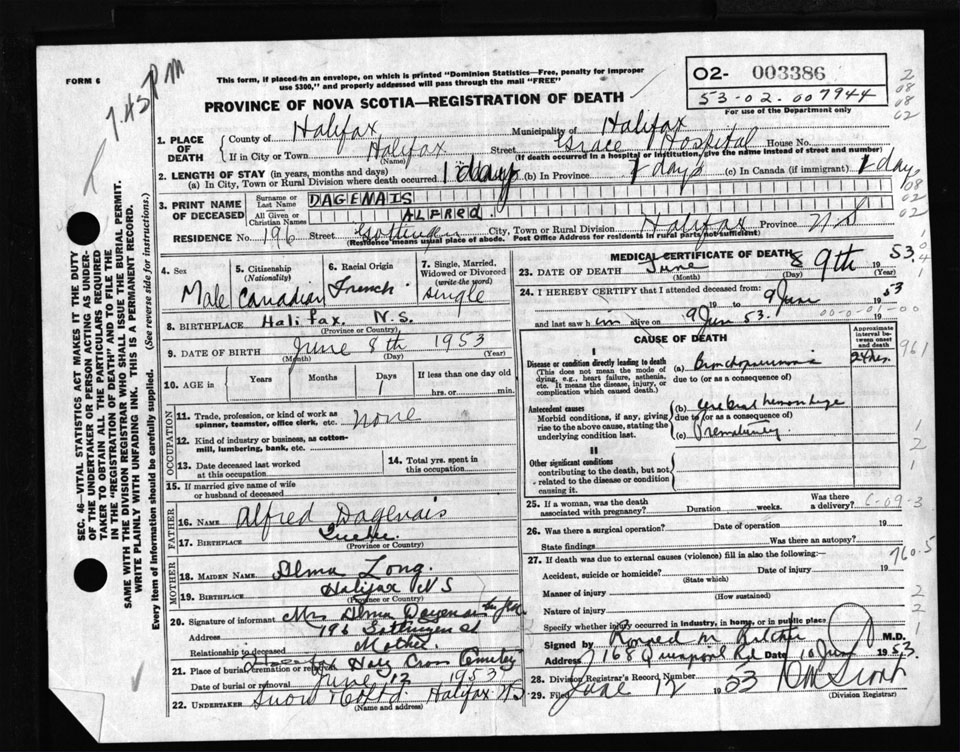 FORM 6
7.45 P M
This form, if placed in an envelope, on which is printed "Dominion Statistics—Free, penalty for improper
use $300," and properly addressed will pass through the mail "FREE"
PROVINCE OF NOVA SCOTIA—REGISTRATION OF DEATH
O2- 003386
53-02.007944
For use of the Department only
2
08
08
02
1. PLACE OF DEATH
County of Halifax Municipality of Halifax
If in City or Town Halifax Street Grace Hospital House No.
(Name) (If death occurred in a hospital or institution, give the name instead of street and number)
2. LENGTH OF STAY (in years, months and days)
(a) In City, Town or Rural Division where death occurred 1 day (b) In Province 1 day (c) In Canada (if immigrant) 1 day
3. PRINT NAME OF DECEASED
Surname or Last Name DAGENAIS
All Given or Christian Names ALFRED
08
02
RESIDENCE No. 196 Street Gottingen City, Town or Rural Division Halifax Province N.S
(Residence means usual place of abode. Post Office Address for residents in rural parts not sufficient)
4. Sex
Male
5. Citizenship (Nationality)
Canadian
6. Racial Origin
French
7. Single, Married, Widowed or Divorced (write the word)
Single
8. BIRTHPLACE Halifax. N.S.
(Province or Country)
9. DATE OF BIRTH June 8th 1953
(Month) (Day) (Year)
10. AGE in Years Months Days If less than one day old
hrs. or min.
OCCUPATION
11. Trade, profession, or kind of work as
spinner, teamster, office clerk, etc. none
12. Kind of industry or business, as cotton-
mill, lumbering, bank, etc.
13. Date deceased last worked
at this occupation
14. Total yrs. spent in
this occupation
15. If married give name of wife
or husband of deceased
FATHER
16. NAME Alfred Dagenais
17. BIRTHPLACE Quebec
(Province or Country)
MOTHER
18. MAIDEN NAME Alma Long.
19. BIRTHPLACE Halifax N S
(Province or Country)
20. Signature of informant Mrs. Alma Dagenais
Address 196 Gottingen St
Relationship to deceased Mother
21. Place of burial, cremation or removal Halifax Holy Cross Cemetery
Date of burial or removal June 12 1953
22. UNDERTAKER Snow & Co Ltd. Halifax N S
(Name and address)
MEDICAL CERTIFICATE OF DEATH
23. DATE OF DEATH June 9th 1953
(Month) (Day) (Year)
24. I HEREBY CERTIFY that I attended deceased from:
9 June to 9 June 1953
and last saw him alive on 9 June 53. 19
00-0-01-00
CAUSE OF DEATH
Approximate interval between onset and death
I
Disease or condition directly leading to death
(This does not mean the mode of
dying, e.g., heart failure, asthenia,
etc. It means the disease, injury, or
complication which caused death.)
(a) Bronchopneumonia 24 hrs.
due to (or as a consequence of)
961
Antecedent causes
Morbid conditions, if any, giving
rise to the above cause, stating the
underlying condition last.
(b) Cerebral hemorrhage
due to (or as a consequence of)
(c) Prematurity.
II
Other significant conditions
contributing to the death, but not
related to the disease or condition
causing it.
1
2
1
25. If a woman, was the death
associated with pregnancy? Duration weeks. Was there a delivery?
6-09-3
26. Was there a surgical operation? Date of operation 19
State findings Was there an autopsy?
27. If death was due to external causes (violence) fill in also the following:—
760.5
Accident, suicide or homicide? Date of injury 19
(State which)
Manner of injury
(How sustained)
Nature of injury
Specify whether injury occurred in industry, in home, or in public place
2
2
1
Signed by Ronald M Ritchie M.D.
Address 168 Quinpool Rd Date 10 June 1953.
28. Division Registrar's Record Number
29. Filed June 12 1953
(Division Registrar)
SEC. 46—VITAL STATISTICS ACT MAKES IT THE DUTY
OF THE UNDERTAKER OR PERSON ACTING AS UNDER-
TAKER TO OBTAIN ALL THE PARTICULARS REQUIRED
IN THE "REGISTRATION OF DEATH" AND TO FILE THE
SAME WITH THE DIVISION REGISTRAR WHO SHALL ISSUE THE BURIAL PERMIT.
WRITE PLAINLY WITH UNFADING INK. THIS IS A PERMANENT RECORD.
Every item of information should be carefully supplied. (See reverse side for instructions.)